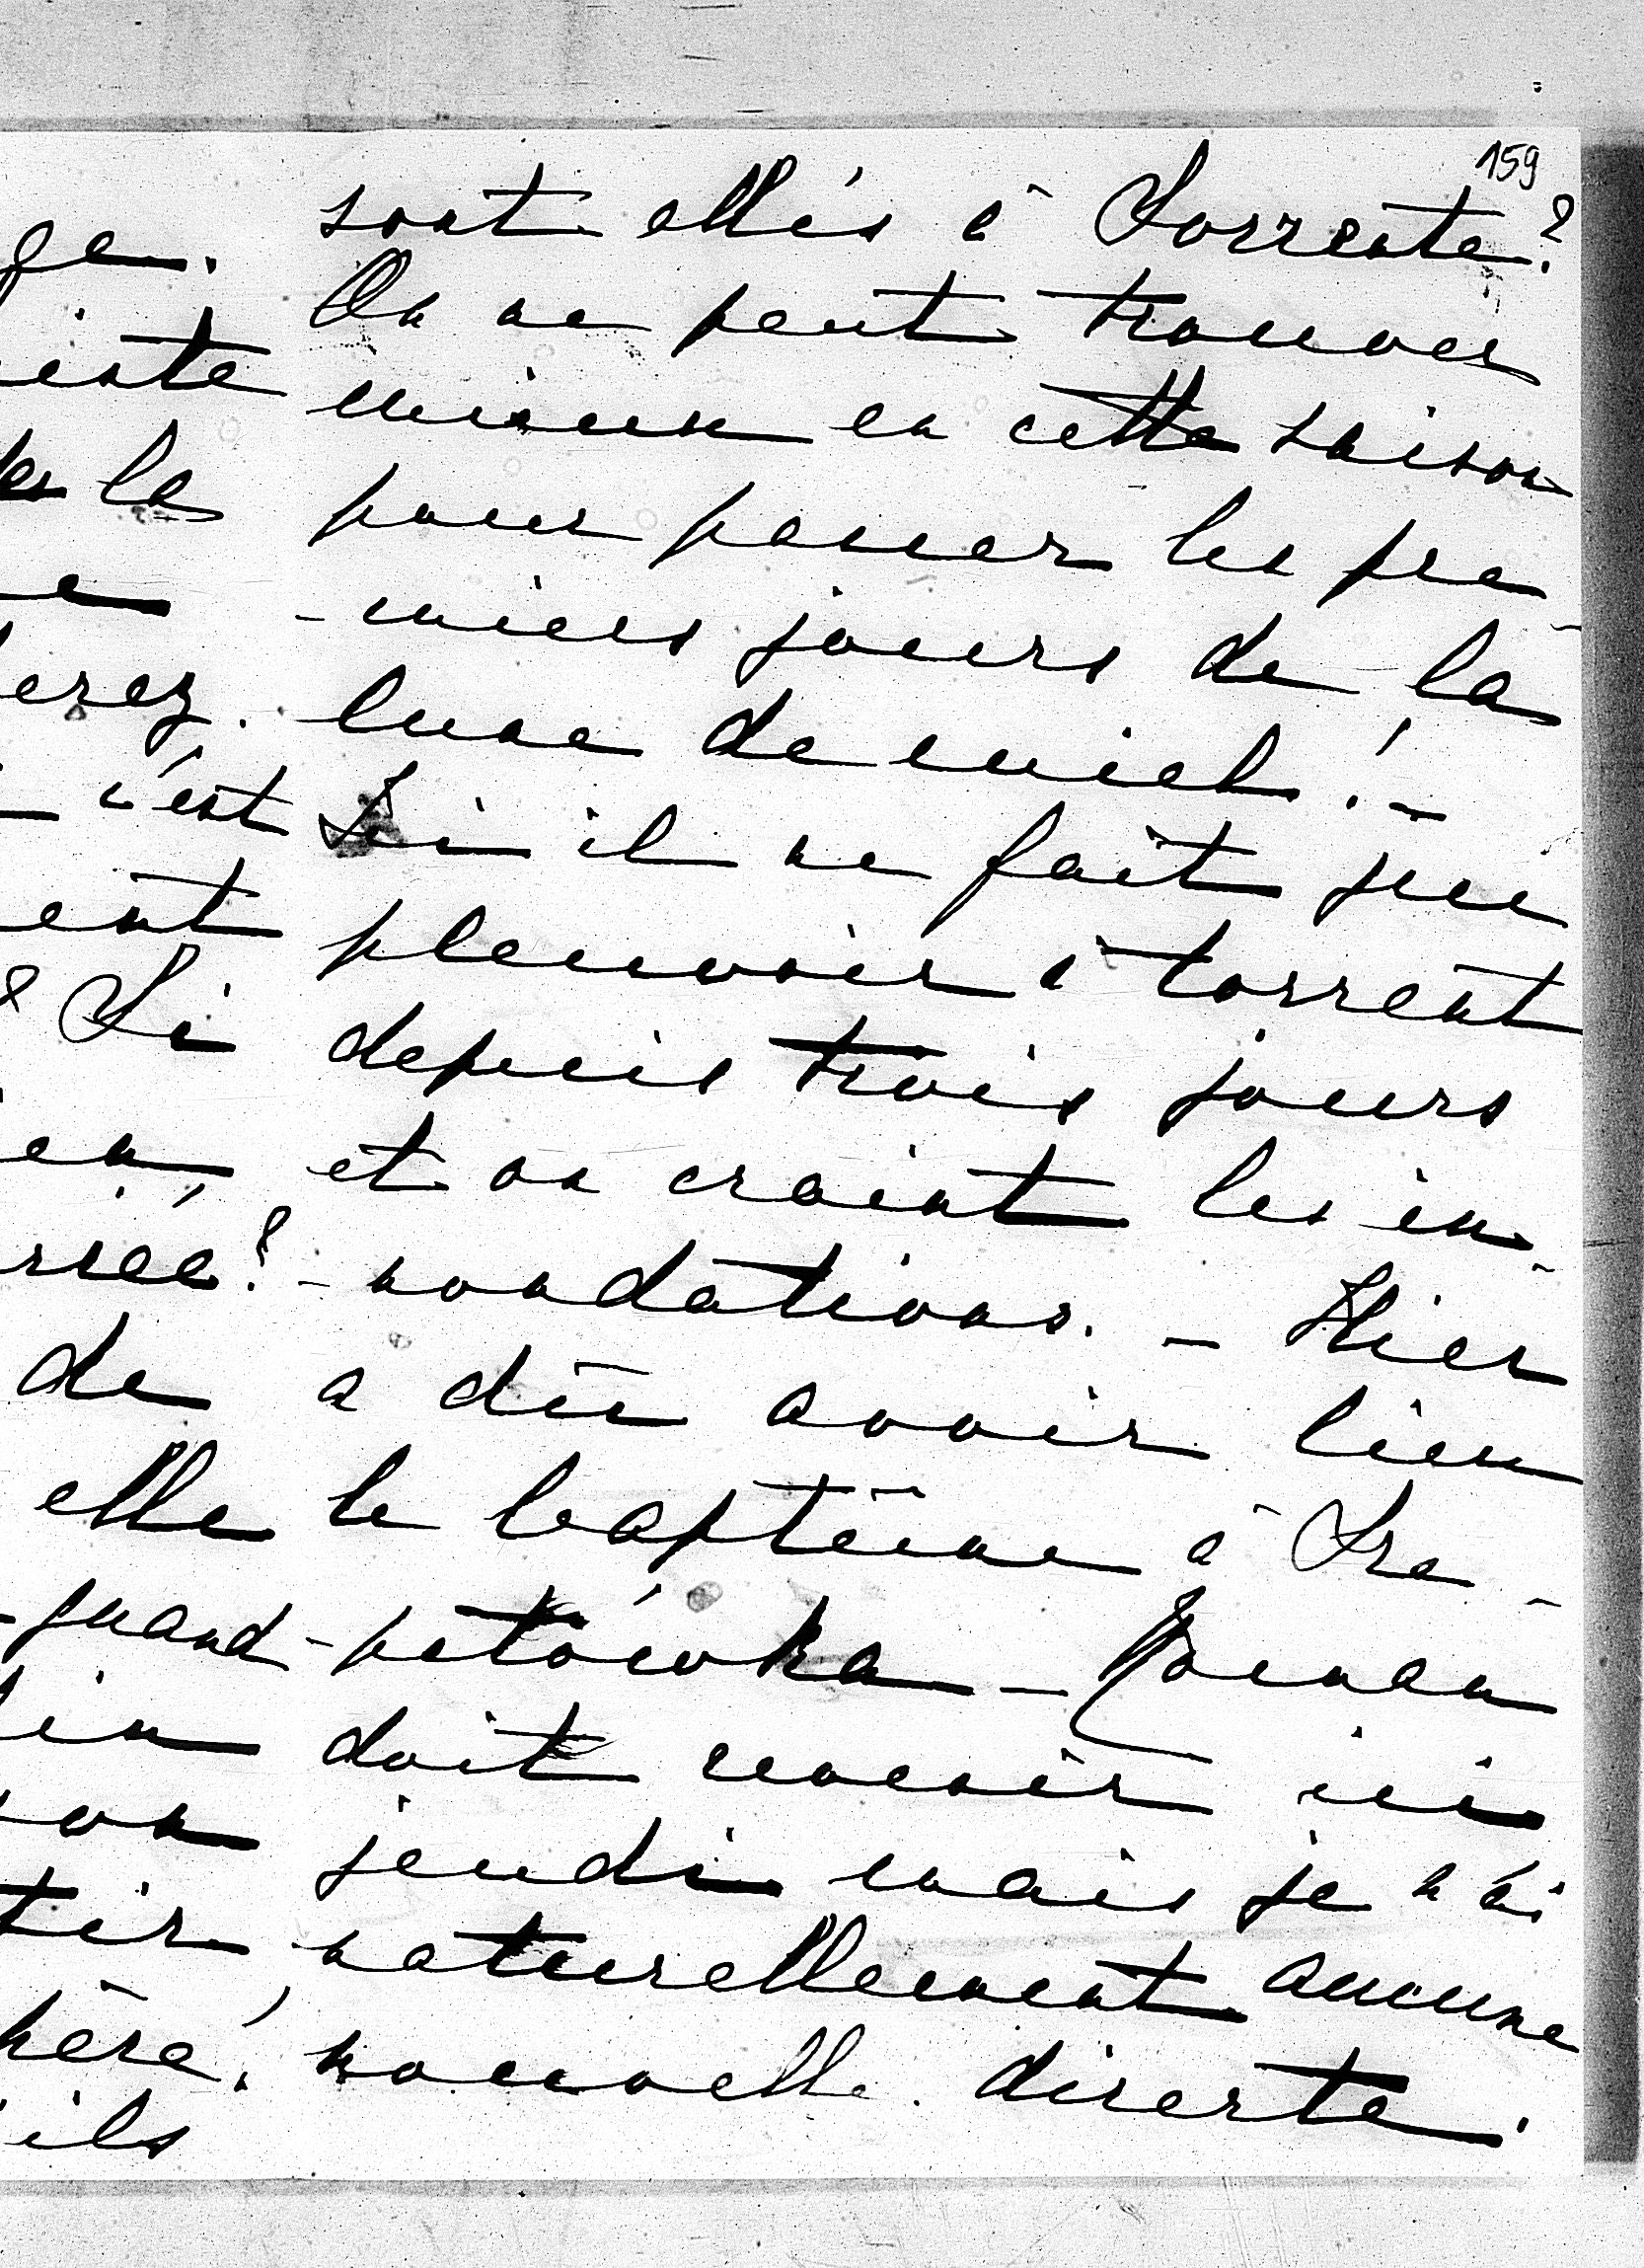 ge.
la
erez.
c'est
ent
? Si
en
de
elle
-quand
in
tir
ils
159
sont allés à Sorrente?
On ne peut trouver
mieux en cette saison
pour passer les pre-
-miers jours de la
lune de miel! –
Ici il ne fait que
pleuvoir à torrent
depuis trois jours
et on craint les in-
-nondations. – Hier
a dû avoir lieu
le baptême à Sze-
-petówka – Roman
doit revenir ici
jeudi mais je n'ai
naturellement aucune
nouvelle directe.